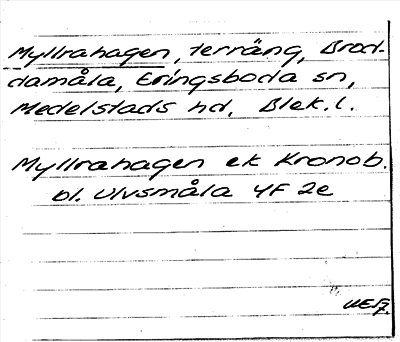 Myllrahagen, terräng, Brod-
damåla, Eringsboda sn,
Medelstads hd, Blek. l.
Myllrahagen ek Kronob.
bl. Ulvsmåla 4F 2e